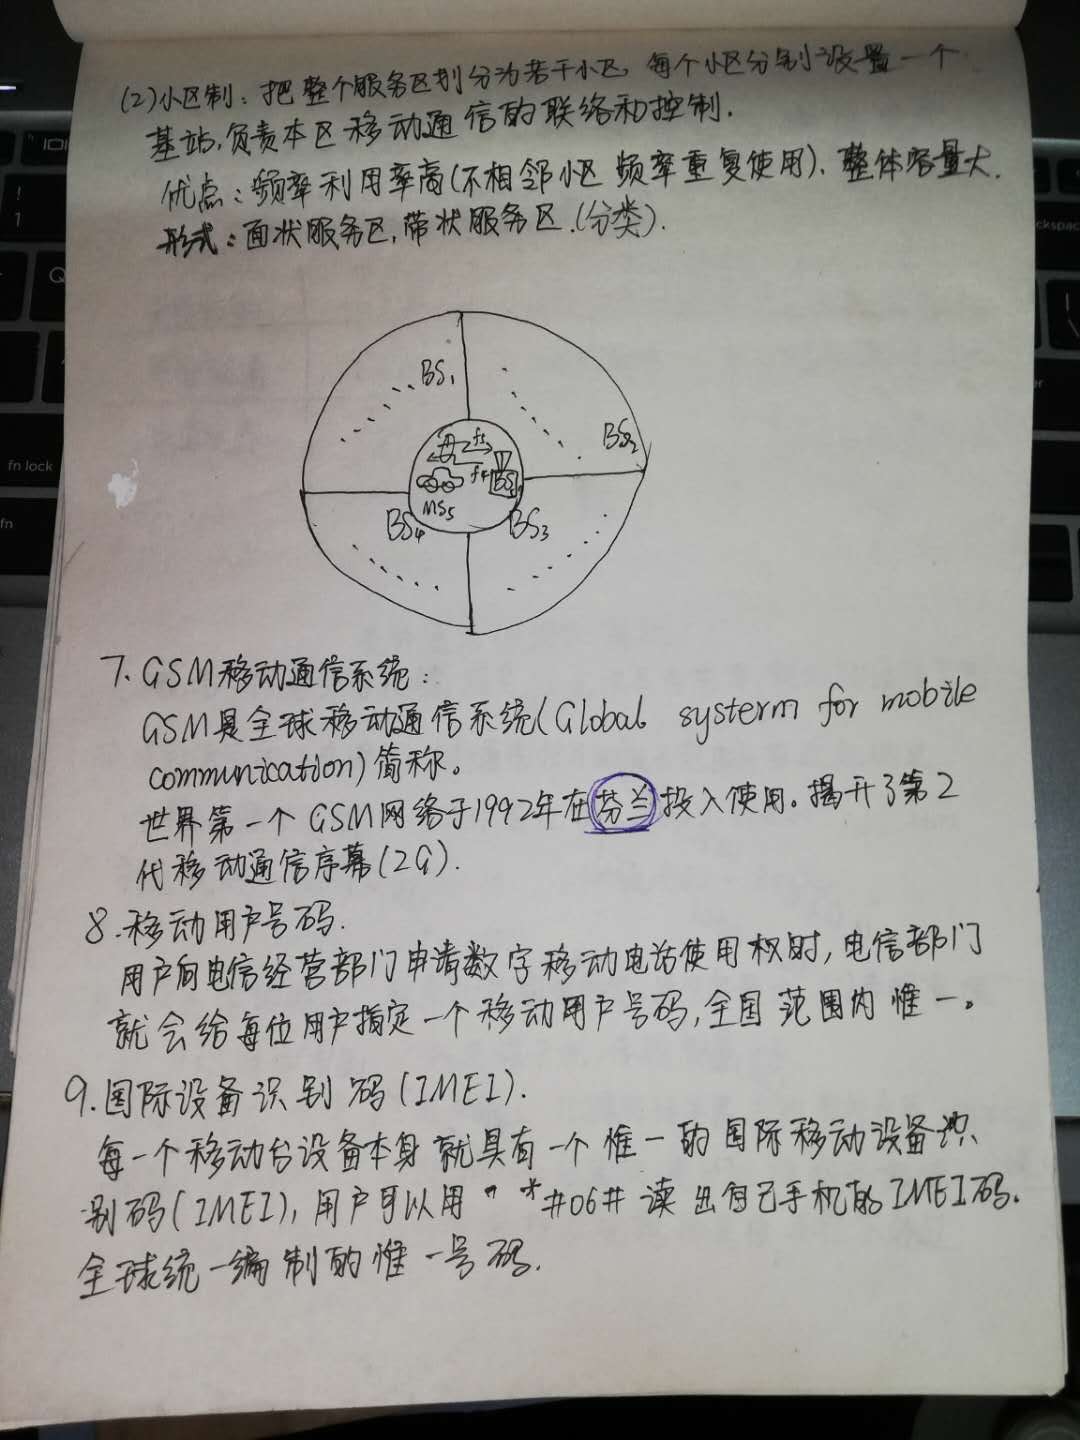 (2)小区制：把整个服务区划分为若干小区，每个小区分别设置一个
基站，负责本区移动通信的联络和控制.
优点：频率利用率高(不相邻小区频率重复使用)、整体容量大.
形式：面状服务区，带状服务区.(分类).
BS₁
BS₂
f₅
f₄
BS
MS₅
BS₄
BS₃
7、GSM移动通信系统：
GSM是全球移动通信系统(Global systerm for mobile
communication)简称。
世界第一个GSM网络于1992年在芬兰投入使用。揭开了第2
代移动通信序幕(2G).
8.移动用户号码.
用户向电信经营部门申请数字移动电话使用权时，电信部门
就会给每位用户指定一个移动用户号码，全国范围内惟一。
9.国际设备识别码(IMEI).
每一个移动台设备本身就具有一个惟一的国际移动设备识
别码(IMEI)，用户可以用"*#06#读出自己手机的IMEI码.
全球统一编制的惟一号码.
fn lock
fn
Q
!
1